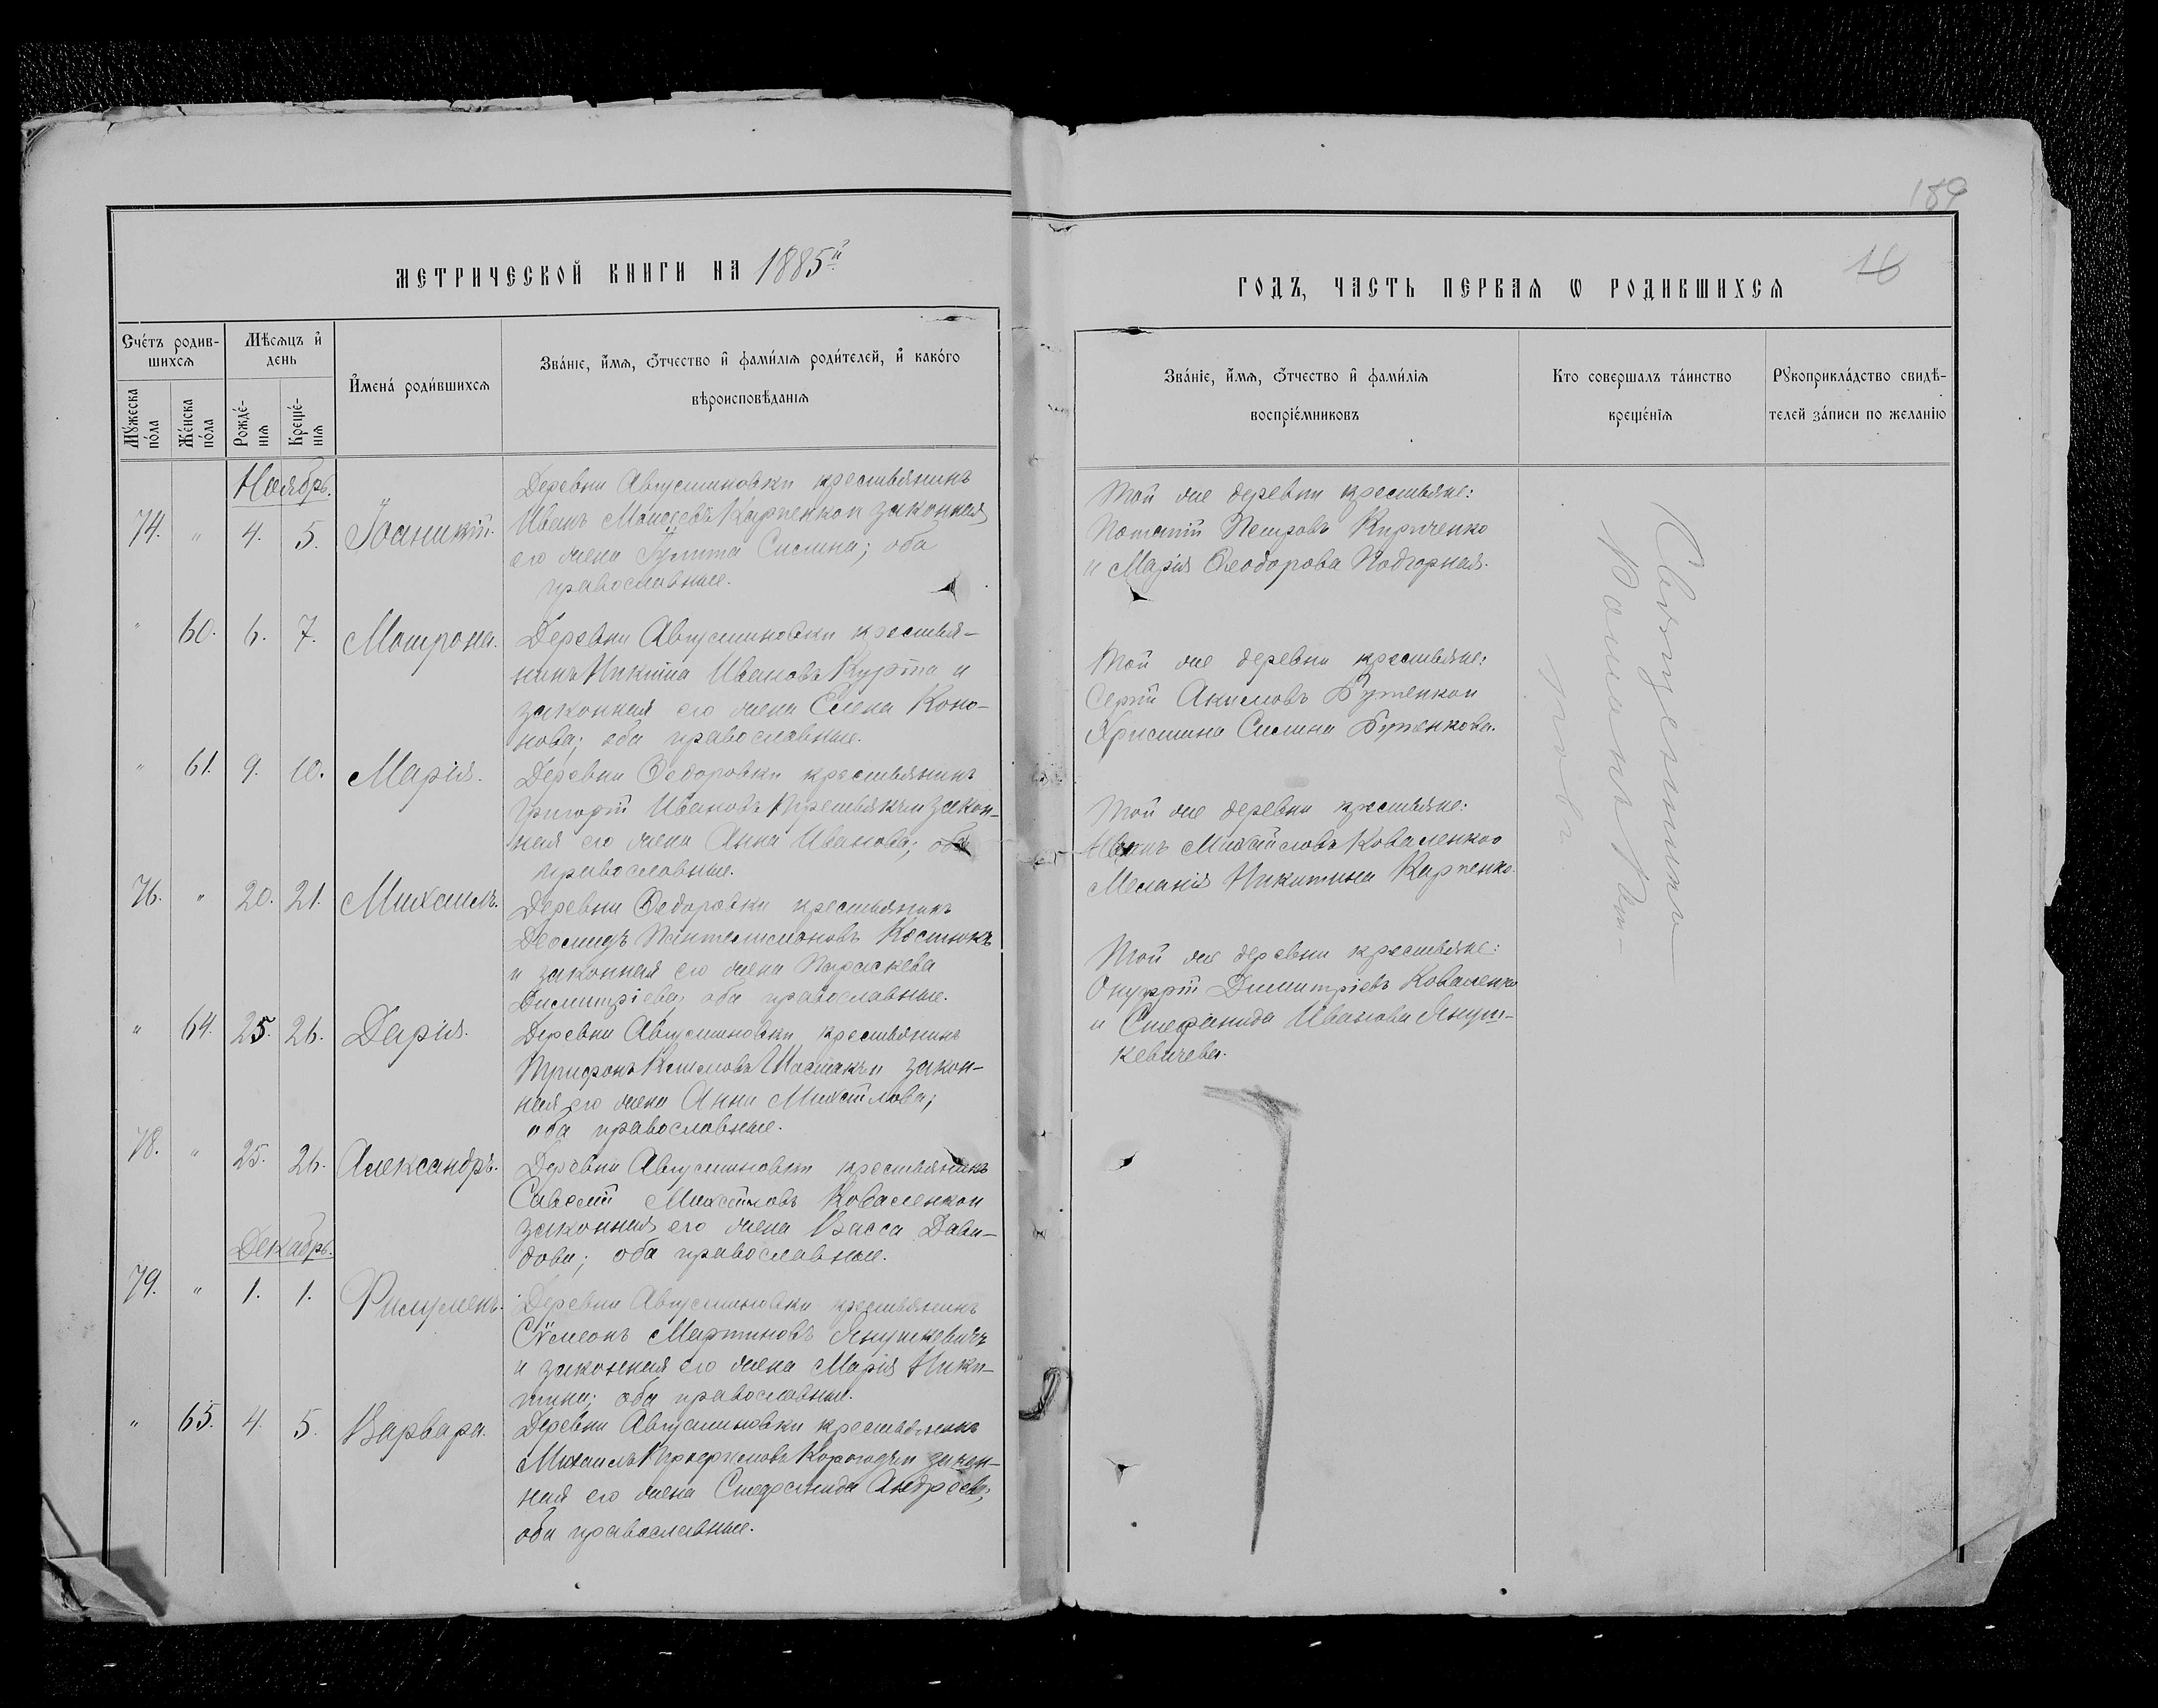 189
МЕТРИЧЕСКОЙ КНИГИ НА 1885й
ГОДЪ, ЧАСТЬ ПЕРВАЯ Ѡ РОДИВШИХСЯ
16
Счéтъ родив-
шихся
Мѣсяцъ и
день
Имена родившихся
Звáніе, имя, Отчество и фамилія родителей, и какóго
вѣроисповѣданія
Мꙋжеска
пóла
Жéнска
пóла
Рождé-
нія
Крещé-
нія
Звáніе, имя, Отчество и фамилія
воспріéмниковъ
Кто совершалъ тáинство
крещéнія
Рꙋкоприклáдство свидѣ-
телей зáписи по желанію
Ноябрь.
74. " 4. 5. Іоаникій.
Деревни Августиновки крестьянинъ
Иванъ Моисеевъ Карпенко и законная
его жена Силина; оба
православные.
Той же деревни крестьяне:
Потапій Петровъ Кириченко
и Марія Ѳеодорова Подгорная.
" 60. 6. 7. Мотрона.
Деревни Августиновки крестья-
нинъ Никита Ивановъ Курта и
законная его жена Елена Коно-
нова; оба православные.
Той же деревни крестьяне:
Сергій Акимовъ Бутенко и
Христина Силина Бутенкова.
" 61. 9. 10. Марія.
Деревни Ѳедоровки крестьянинъ
Григорій Ивановъ и закон-
ная его жена Анна Иванова; оба
православные.
Той же деревни крестьяне:
Иванъ Михайловъ Коваленко
Меланія Никитина Карпенко.
76. " 20. 21. Михаилъ.
Деревни Ѳедоровки крестьянинъ
Діомидъ Пантелимоновъ Костюкъ
и законная его жена Параскева
Димитріева, оба православные.
Той же деревни крестьяне:
Онуфрій Димитріевъ Коваленко
и Стефанида Иванова Януш-
кевичева.
" 64. 25. 26. Дарія.
Деревни Августиновки крестьянинъ
Трифонъ Климовъ Шостакъ и закон-
ная его жена Анна Михайлова;
оба православные.
78. " 25. 26. Александръ.
Деревни Августиновки крестьянинъ
Савелій Михайловъ Коваленко и
законная его жена Васса Дави-
дова; оба православные.
Декабрь.
79. " 1. 1. Филуменъ.
Деревни Августиновки крестьянинъ
Сѵмеонъ Мартиновъ Янушкевичъ
и законная его жена Марія Ники-
тина; оба православные.
" 65. 4. 5. Варвара.
Деревни Августиновки крестьянинъ
Михаилъ и закон-
ная его жена Стефанида Андреева,
оба православные.
Священникъ